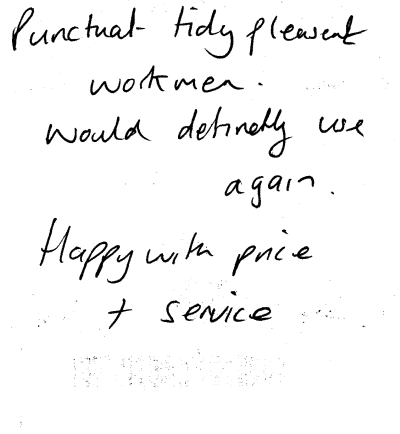 Punctual - tidy pleasent
workmen.
would definetly use
again.
Happy with price
+ service